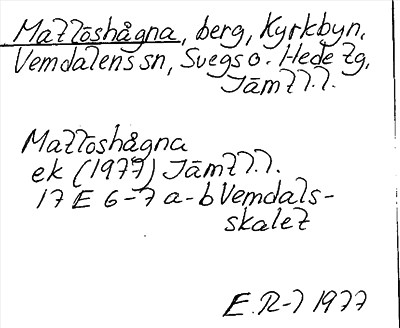 Mattöshågna, berg, Kyrkbyn,
Vemdalens sn, Svegs o. Hede tg,
Jämtl.l.
Mattöshågna
ek (1977) Jämtl.l.
17 E 6-7 a-b Vemdals-
skalet
E.R-l 1977